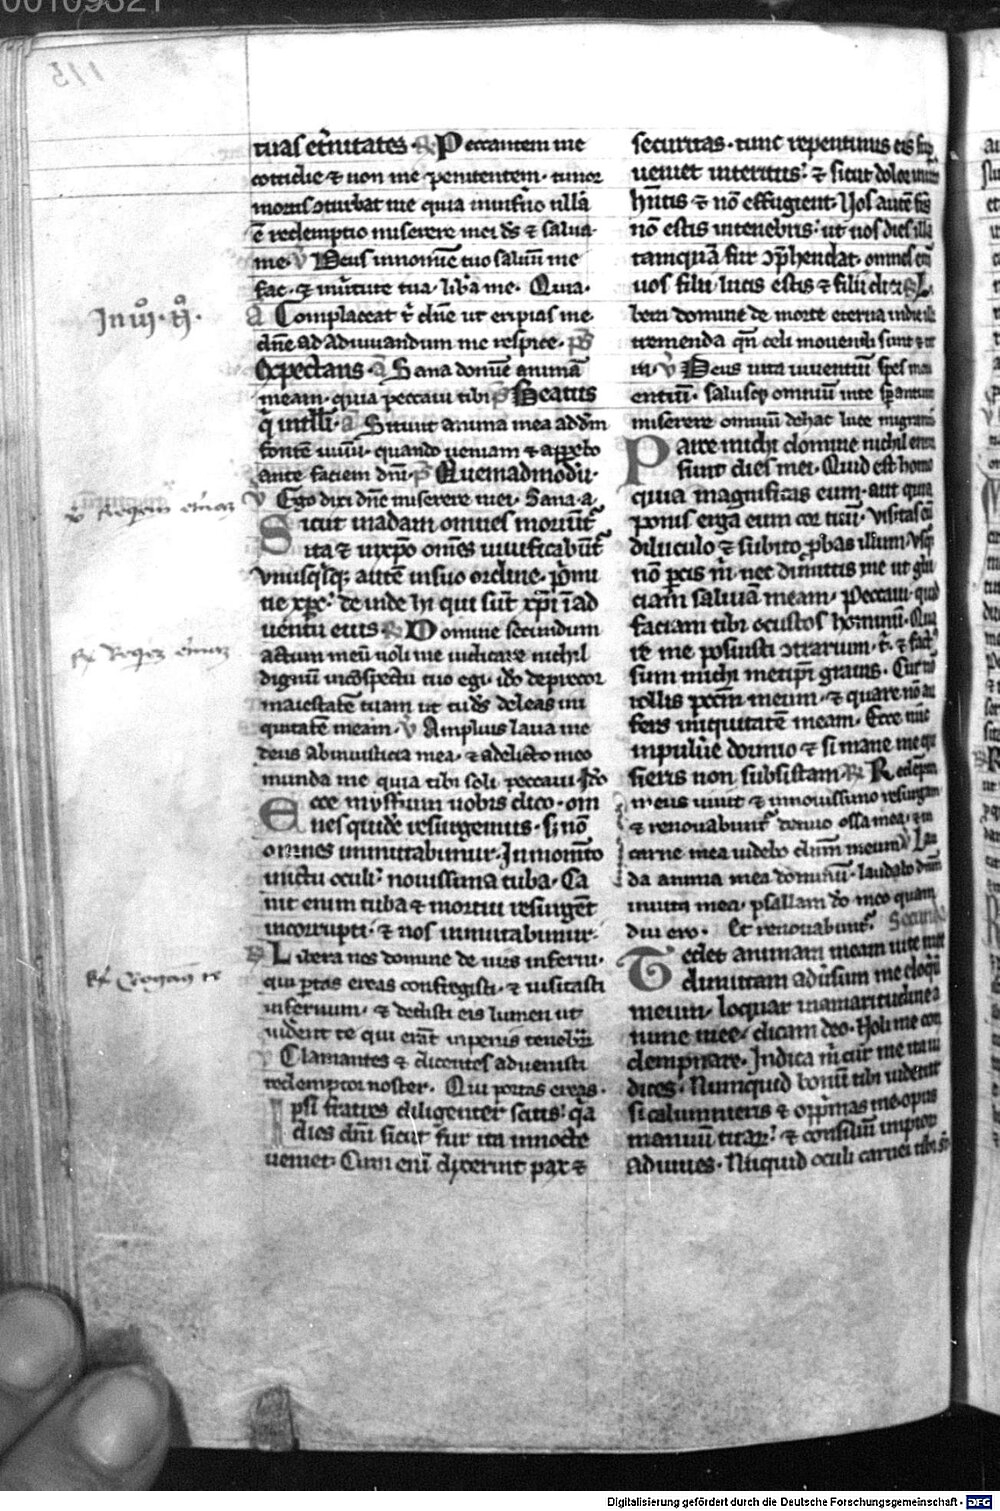 00109321
115
tuas et̄nitates · R Peccantem me
cottidie ⁊ non me penitentem · timor
mortis ꝯturbat me quia in inf̄no nulla
ē redemptio miserere mei ds̄ ⁊ salua
me · V Deus in noīe tuo saluū me
fac · ⁊ in ūtute tua · lib̄a me · Quia ·
In iij · n̄ ·
A Complaceat t̄ dn̄e ut eripias me
dn̄e ad adiuuandum me respice · ps̄
Expectans · A Sana domīe animā
meam · quia peccaui tibi ps̄ Beatus
q̄ intll̄i · A Sitiuit anima mea ad dm̄
fontē uiuū · quando ueniam ⁊ apparebo
ante faciem dn̄i · ps̄ Quemadmodū ·
V Ego dixi dn̄e miserere mei · Sana · a ·
Sicut in adam omnes moriūt̄
ita ⁊ in xp̄o om̄es uiuificabūt̄
vnusq̇sq; autē in suo ordine · p̄mi
tie xp̄c · deinde hi qui sūt xp̄i ī ad
uentu eius R Domine secundum
actum meū noli me iudicare nichil
dignū in cōspectu tuo egi · ido deprecor
maiestatē tuam ut tu ds̄ deleas ini
quitatē meam · V Amplius laua me
deus ab iniusticia mea · ⁊ a delicto meo
munda me quia tibi soli peccaui Ido
Ecce mystīum uobis dico · om
nes quidē resurgemus · s; nō
omnes inmutabimur · In momēto
in ictu oculi · nouissima tuba · Ca
nit enim tuba ⁊ mortui resurgēt
incorrupti · ⁊ nos inmutabimur ·
R Libera nos domine de uiis inferni ·
qui portas ereas confregisti · ⁊ uisitasti
infernum · ⁊ dedisti eis lumen ut
uiderent te qui erāt in penis tenebrar̄
V Clamantes ⁊ dicentes aduenisti
redemptor noster · Qui portas ereas ·
Ipsi fratres diligenter scitis · q̄a
dies dn̄i sicut fur ita in nocte
ueniet · Cum enī dixerint pax ⁊
securitas · tunc repentinus eis sup
ueniet interitus · ⁊ sicut dolor in ut̄o
hn̄tis ⁊ nō effugient · Uos autē frs̄
nō estis in tenebris · ut uos dies illa
tamquā fur ꝯp̄hendat · omnes enī
uos filii lucis estis ⁊ filii diei R Li
bera domine de morte eterna in die illa
tremenda qn̄ celi mouendi sunt ⁊ t̄
ra · V Deus uita uiuentiū spes mori
entiū · salusq; omniū in te sperantium
miserere omniū de hac luce migrantiū
Parce michi domine nichil enim
sunt dies mei · Quid est homo
quia magnificas eum · aut quid
ponis erga eum cor tuū · Uisitas eū
diluculo ⁊ subito p̄bas illum · Usq̄
nō parcis m̄ · nec dimittis me ut glu
ciam saliuā meam · Peccaui · quid
faciam tibi o custos hominū · Qua
re me posuisti ꝯtrarium · t̄ · ⁊ fact̄
sum michi metipsi grauis · Cur nō
tollis pccm̄ meum · ⁊ quare nō au
fers iniquitatē meam · Ecce nūc
in puluē dormio ⁊ si mane me que
sieris non subsistam · R Redemptor
meus uiuit ⁊ in nouissimo resurgam
⁊ renouabunt̄ denuo ossa mea · ⁊ in
carne mea uidebo dn̄m meum V Lau
da anima mea dominū · laudabo dn̄m
in uita mea · psallam do meo quam
diu ero · Et renouabunt̄ Secunda
Tedet animam meam uite mee
dimittam adūsum me eloq̄ū
meum · loquar in amaritudine a
nime mee · dicam deo · Noli me con
dempnare · Indica m̄ cur me ita iu
dices · Numquid bonū tibi uidetur
si calumnieris ⁊ opp̄mas me opus
manuū tuar̄ · ⁊ consiliū impior̄
adiuues · Nūquid oculi carnei tibi s̄
Digitalisierung gefördert durch die Deutsche Forschungsgemeinschaft - DFG